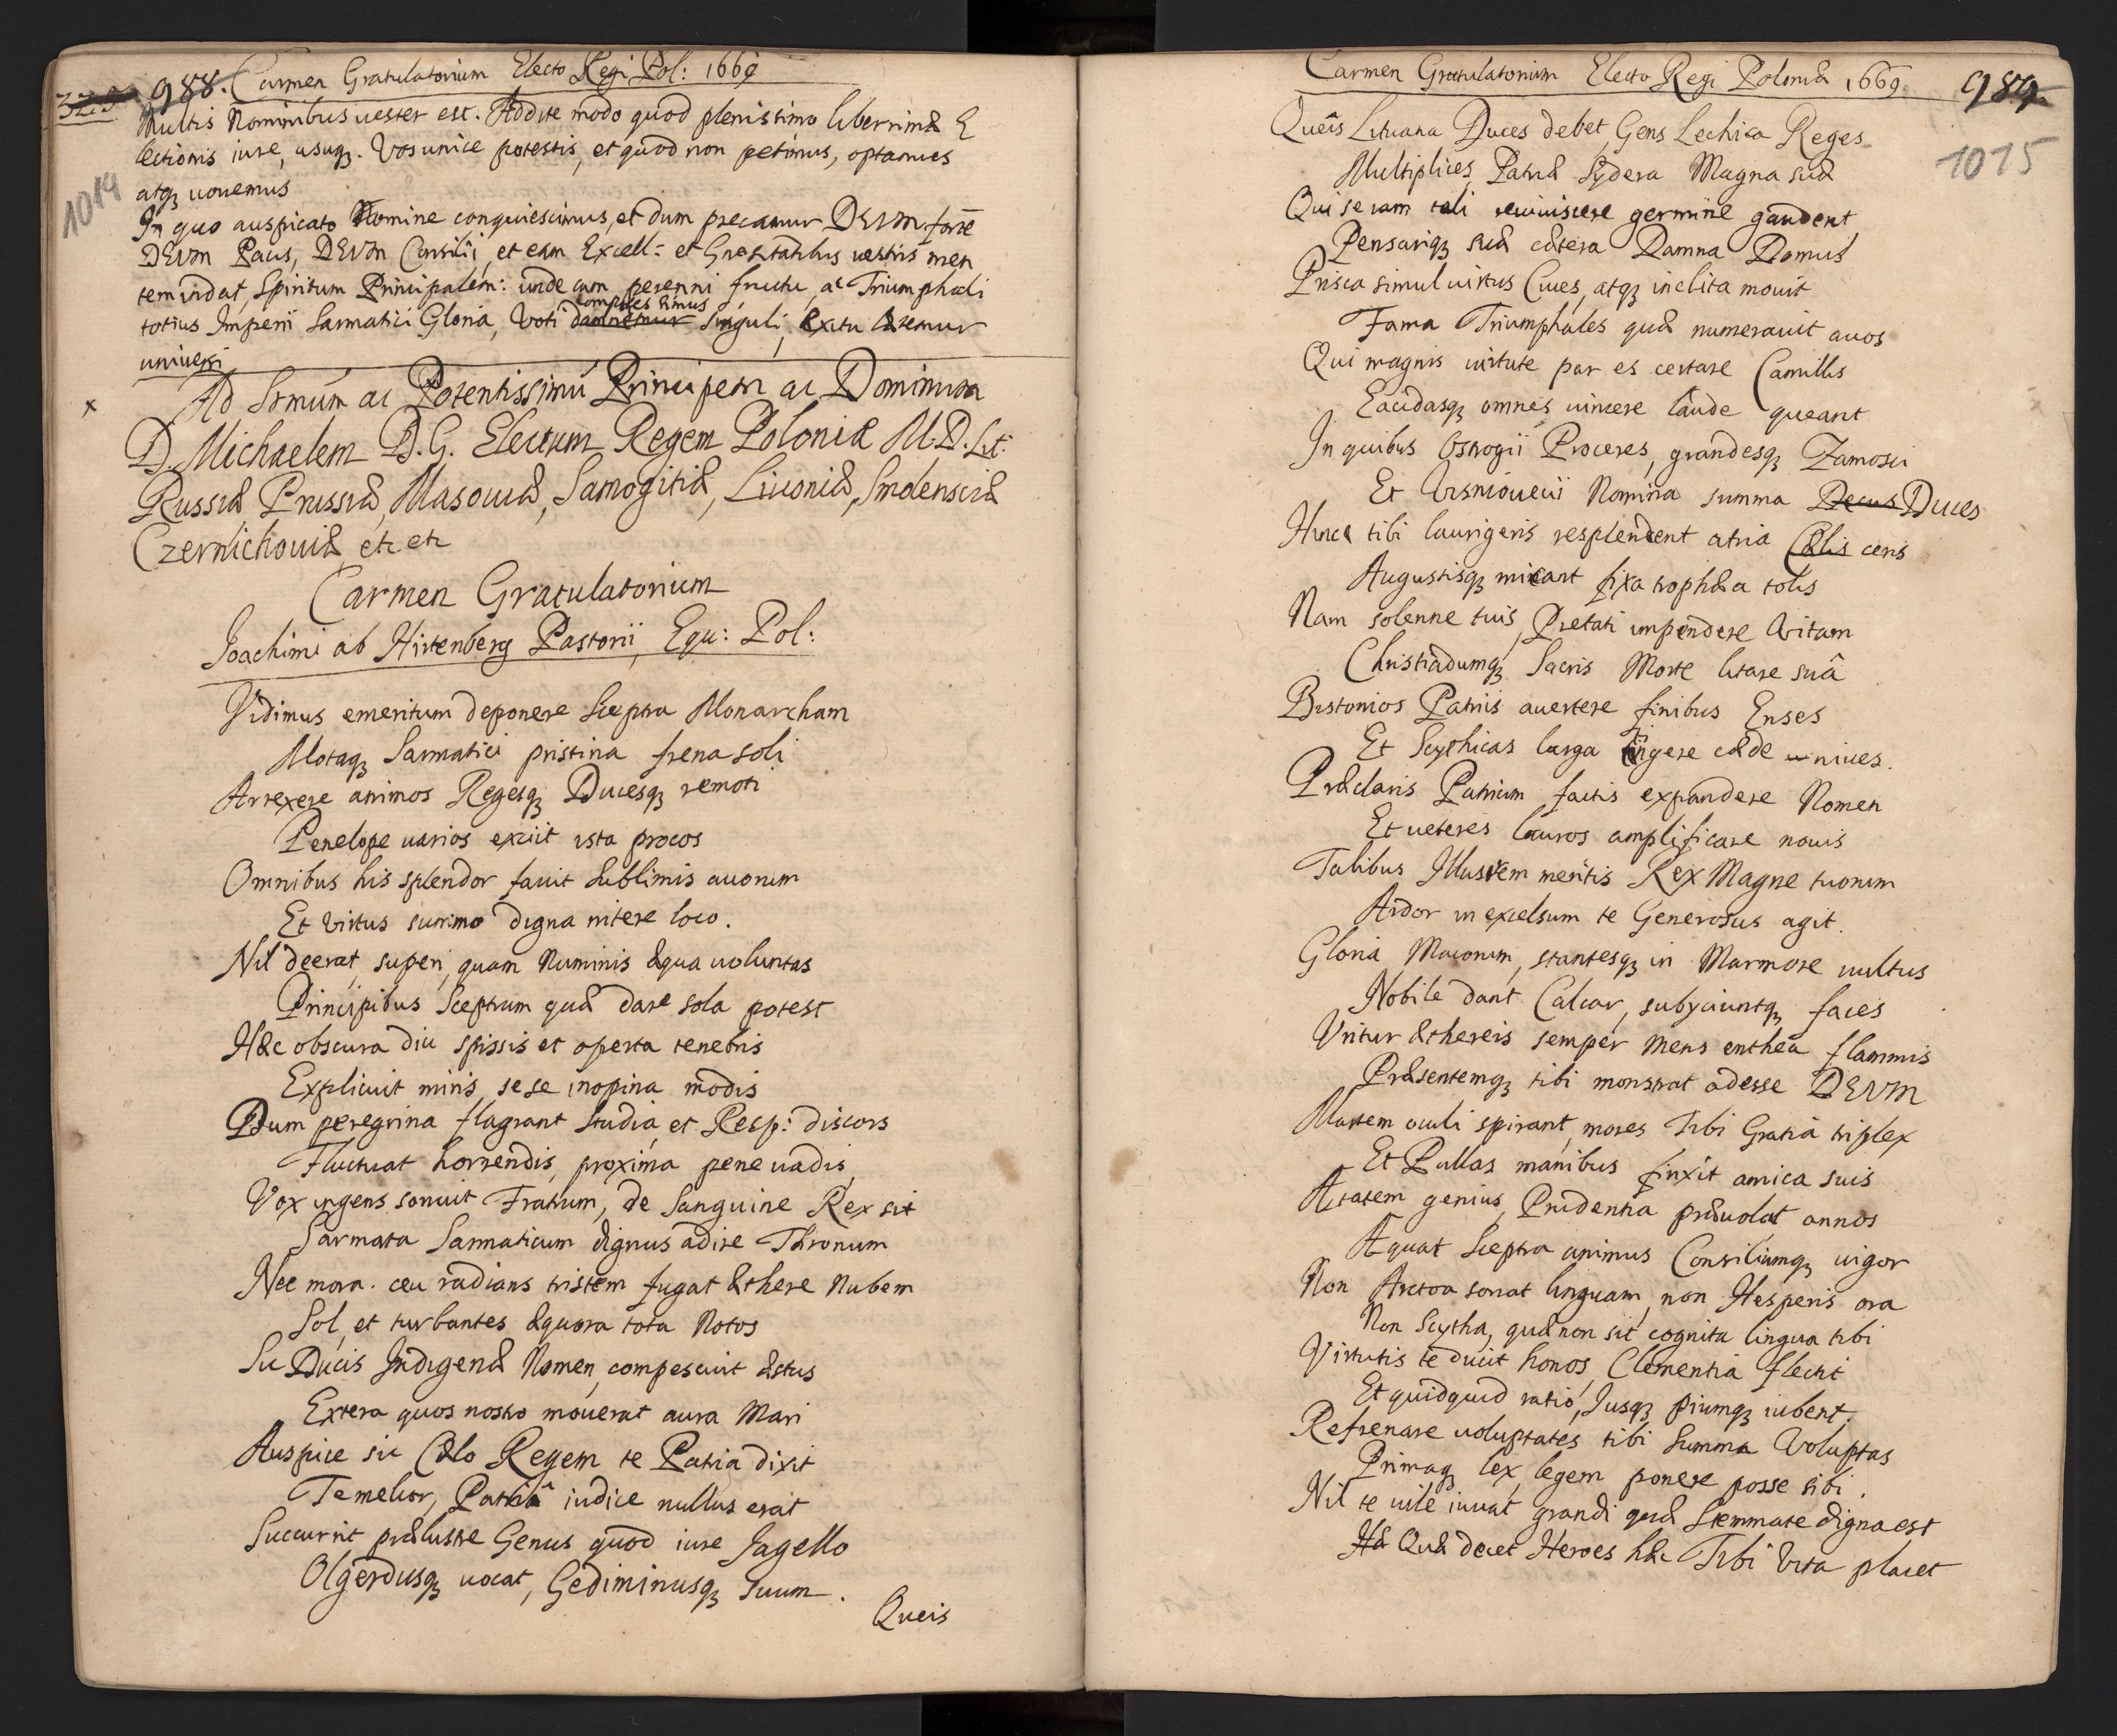 325 988. Carmen Gratulatorium Electo Regi Pol: 1669
Multis Nominibus uester est. Addite modo quod plenissimo liberrimæ E
lectionis iure, usuqꝫ. Vos unice potestis, et quod non petimus, optamus
atqꝫ uouemus
1014
In quo auspicato Nomine conquiescimus, et dum precamur DEVM fortē
DEVM Pacis, DEVM Consilii, et eam Excell: et Gnositatibus uestris men
tem indat, Spiritum Principalem: unde cum perenni fructu, ac Triumphali
compotes simus
totius Imperii Sarmatici Gloria, Voti damnemur Singuli, exitu lætemur
uniuersi
x Ad Srmum ac Potentissimū Principem ac Dominum
D. Michaelem D.G. Electum Regem Poloniæ M.D. Lit:
Russiæ Prussiæ, Masouiæ, Samogitiæ, Liuoniæ, Smolensciæ
Czernichouiæ etc etc
Carmen Gratulatorium
Joachimi ab Hirtenberg Pastorii, Equ: Pol:
Vidimus emeritum deponere Sceptra Monarcham
Motaqꝫ Sarmatici pristina frena soli
Arrexere animos Regesqꝫ Ducesqꝫ remoti
Penelope uarios exciit ista procos
Omnibus his splendor fauit Sublimis auorum
Et Virtus summo digna nitere loco.
Nil deerat, superi, quam Numinis æqua uoluntas
Principibus Sceptrum quæ dare sola potest
Hæc obscura diu spissis et operta tenebris
Explicuit miris sese inopina modis
Dum peregrina flagrant Studia, et Resp: discors
Fluctuat horrendis, proxima pene uadis
Vox ingens sonuit Fratrum, de Sanguine Rex sit
Sarmata Sarmaticum dignus adire Thronum
Nec mora. ceu radians tristem fugat æthere Nubem
Sol, et turbantes æquora tota Notos
Sic Ducis Indigenæ Nomen, compescuit æstus
Extera quos nostro mouerat aura Mari
Auspice sic Cælo Regem te Patria dixit
Te melior, Patriâ iudice nullus erat
Succurrit prælustre Genus quod iure Jagello
Olgerdusqꝫ uocat, Gediminusqꝫ suum.
Queis
Carmen Gratulatorium Electo Regi Poloniæ 1669. 989.
Queîs Lituana Duces debet, Gens Lechica Reges
1015
Multiplices, Patriæ Sydera Magna suæ
Qui se iam tali reuiuiscere germine gaudent
Pensariqꝫ suæ cætera Damna Domus
Prisca simul uirtus Ciues, atqꝫ inclita mouit
Fama Triumphales quæ numerauit auos
Qui magnis uirtute par es certare Camillis
Eacidasqꝫ omnes uincere laude queant
In quibus Ostrogii Proceres, grandesqꝫ Zamosci
Et Visniouecii Nomina summa Decus Duces
Hinc tibi laurigeris resplendent atria Cælis ceris
Augustisqꝫ micant fixa trophæa tolis
Nam solenne tuis, Pietati impendere Vitam
Christiadumqꝫ Sacris Morte litare suâ
Bistonios Patriis auertere finibus Enses
Et Scythicas larga tingere cæde niues.
Præclaris Patrium factis expandere Nomen
Et ueteres lauros amplificare nouis
Talibus Illustrem meritis Rex Magne tuorum
Ardor in excelsum te Generosus agit.
Gloria Maiorum, stantesqꝫ in Marmore uultus
Nobile dant Calcar, subyciuntqꝫ faces
Vritur æthereis semper Mens enthea flammis
Præsentemqꝫ tibi monstrat adesse DEVM
Martem oculi spirant, mores Tibi Gratia triplex
Et Pallas manibus finxit amica suis
Ætatem genius, Prudentia præuolat annos
Æquat Sceptra animus Consiliumqꝫ uigor
Non Arctoa sonat linguam, non Hesperis ora
Non Scytha, quæ non sit cognita lingua tibi
Virtutis te ducit honos, Clementia flectit
Et quidquid ratio, Jusqꝫ piumqꝫ iubent.
Refrenare uoluptates tibi Summa Voluptas
Primaqꝫ lex, legem ponere posse sibi.
Nil te uile iuuat grandi quæ Stemmate digna est
Hæ Quæ decet Heroes hæc Tibi Vita placet